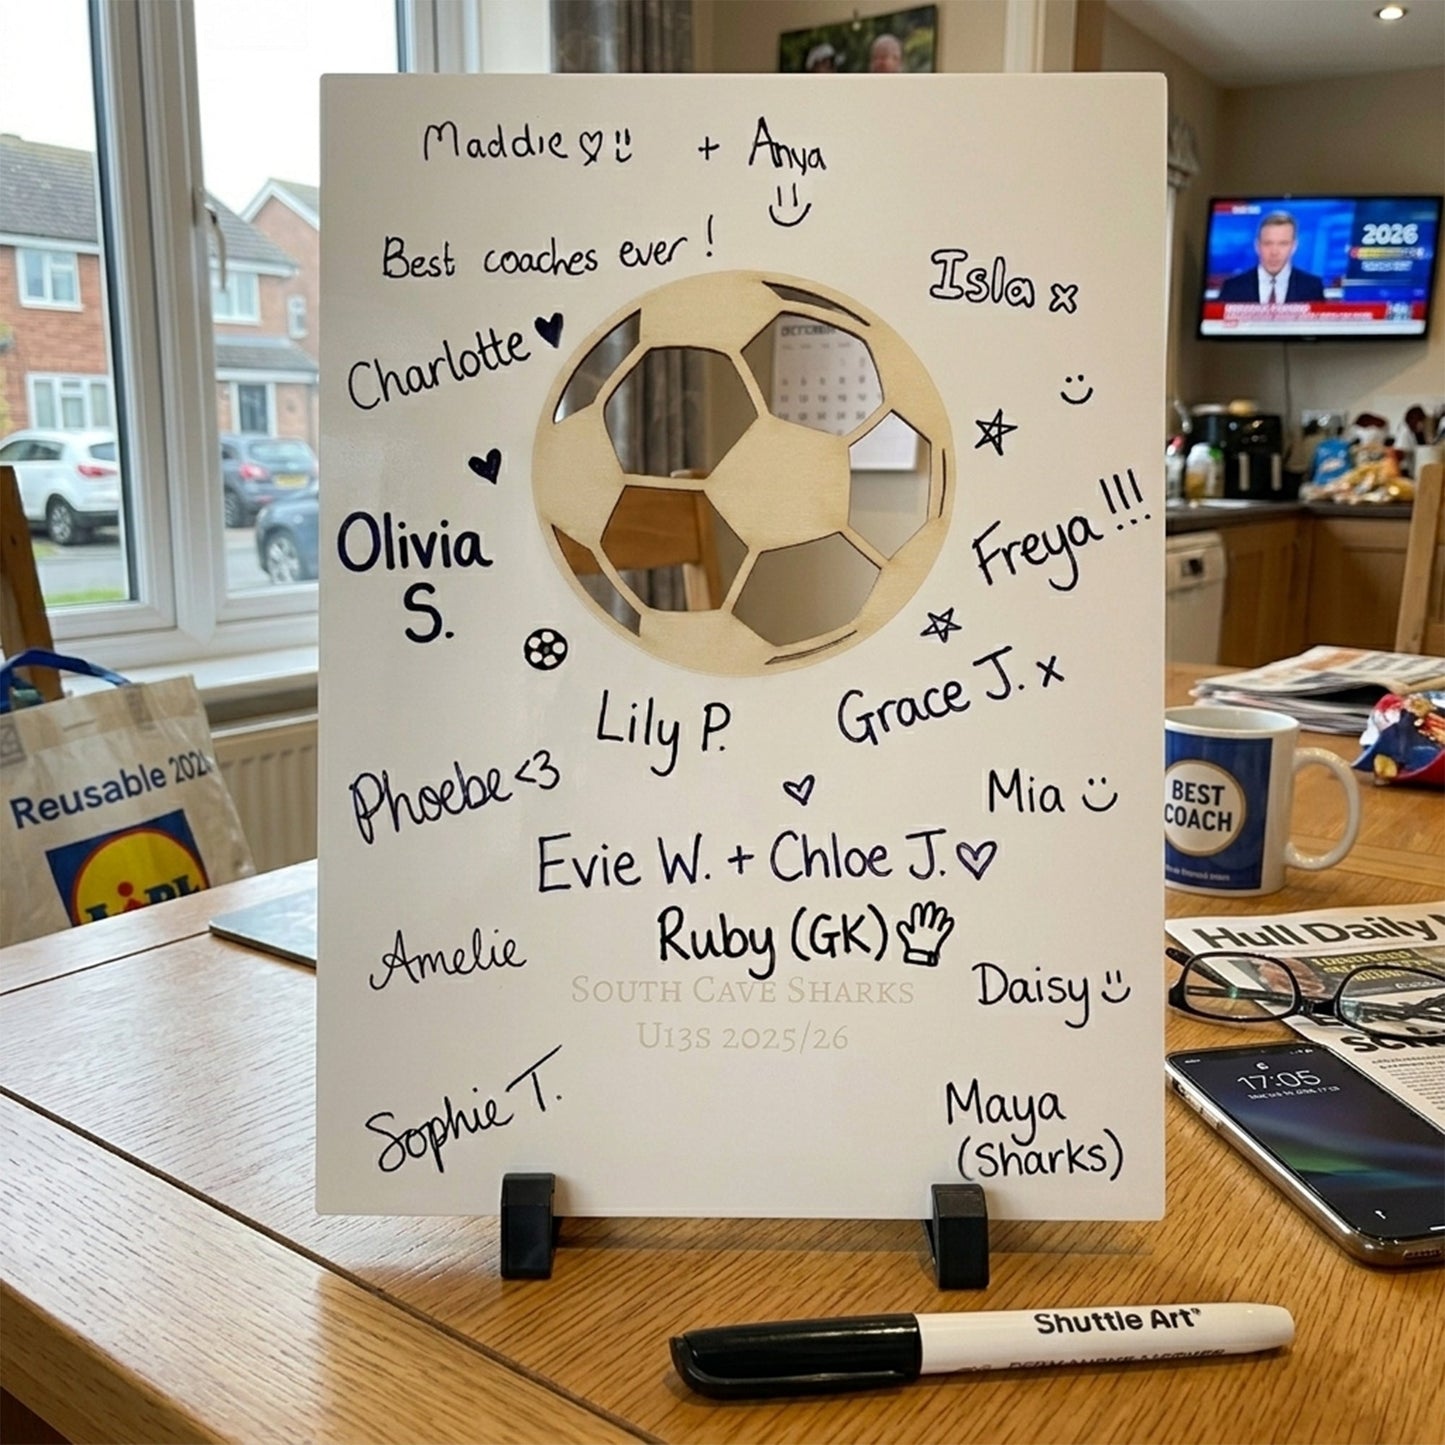 Maddie + Anya
Best coaches ever!
Isla x
Charlotte
Olivia
S.
Freya !!!
Grace J. x
Lily P.
Phoebe <3
Mia
Evie W. + Chloe J.
Ruby (GK)
Amelie
Daisy
SOUTH CAVE SHARKS
U13S 2025/26
Sophie T.
Maya
(Sharks)
OCTOBER
2026
Reusable 202
LIDL
BEST
COACH
Hull Daily M
17:05
Shuttle Art